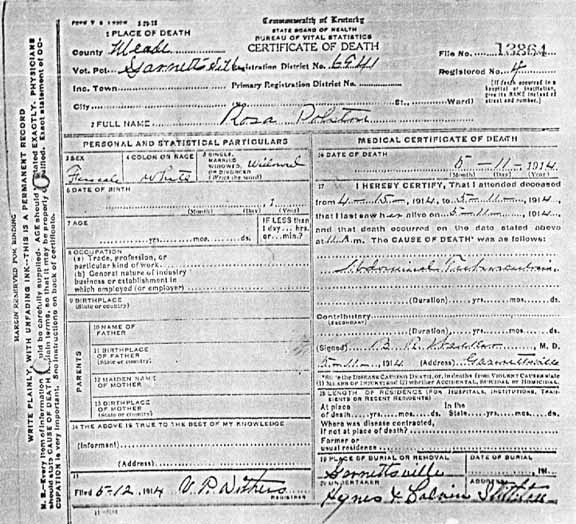 FORM V. S.
Commonwealth of Kentucky
STATE BOARD OF HEALTH
BUREAU OF VITAL STATISTICS
CERTIFICATE OF DEATH
1 PLACE OF DEATH
County Meade
File No. 13864
Vot. Pct. Garnettsville Registration District No. 6941
Registered No. 4
Inc. Town Primary Registration District No.
[If death occurred in a hospital or institution, give its NAME instead of street and number.]
City St., Ward)
2 FULL NAME Rosa Polston
PERSONAL AND STATISTICAL PARTICULARS
3 SEX
Female
4 COLOR OR RACE
White
5 SINGLE, MARRIED, WIDOWED, OR DIVORCED
(Write the word)
Widowed
6 DATE OF BIRTH
, 1
(Month) (Day) (Year)
7 AGE
yrs. mos. ds.
IF LESS than
1 day... hrs.
or...min.?
8 OCCUPATION
(a) Trade, profession, or
particular kind of work
(b) General nature of industry
business or establishment in
which employed (or employer)
9 BIRTHPLACE
(State or country)
PARENTS
10 NAME OF
FATHER
11 BIRTHPLACE
OF FATHER
(State or country)
12 MAIDEN NAME
OF MOTHER
13 BIRTHPLACE
OF MOTHER
(State or country)
14 THE ABOVE IS TRUE TO THE BEST OF MY KNOWLEDGE
(Informant)
(Address)
15
Filed 5-12, 1914 V. P. Withers
REGISTRAR
MEDICAL CERTIFICATE OF DEATH
16 DATE OF DEATH
5-11-, 1914
(Month) (Day) (Year)
17 I HEREBY CERTIFY, That I attended deceased
from 4-15-, 1914, to 5-11-, 1914,
that I last saw her alive on 5-11-, 1914,
and that death occurred on the date stated above
at 11 A.m. The CAUSE OF DEATH* was as follows:
Abdominal
(Duration) yrs. mos. ds.
Contributory
(SECONDARY)
(Duration) yrs. mos. ds.
(Signed) , M. D.
5-11-, 1914 (Address) Garnettsville
*State the DISEASE CAUSING DEATH, or, in deaths from VIOLENT CAUSES state
(1) MEANS OF INJURY; and (2) whether ACCIDENTAL, SUICIDAL, or HOMICIDAL.
18 LENGTH OF RESIDENCE (FOR HOSPITALS, INSTITUTIONS, TRANSIENTS OR RECENT RESIDENTS)
At place In the
of death yrs. mos. ds. State yrs. mos. ds.
Where was disease contracted,
if not at place of death?
Former or
usual residence
19 PLACE OF BURIAL OR REMOVAL
Garnettsville
DATE OF BURIAL
, 191
20 UNDERTAKER
ADDRESS
MARGIN RESERVED FOR BINDING
WRITE PLAINLY, WITH UNFADING INK—THIS IS A PERMANENT RECORD